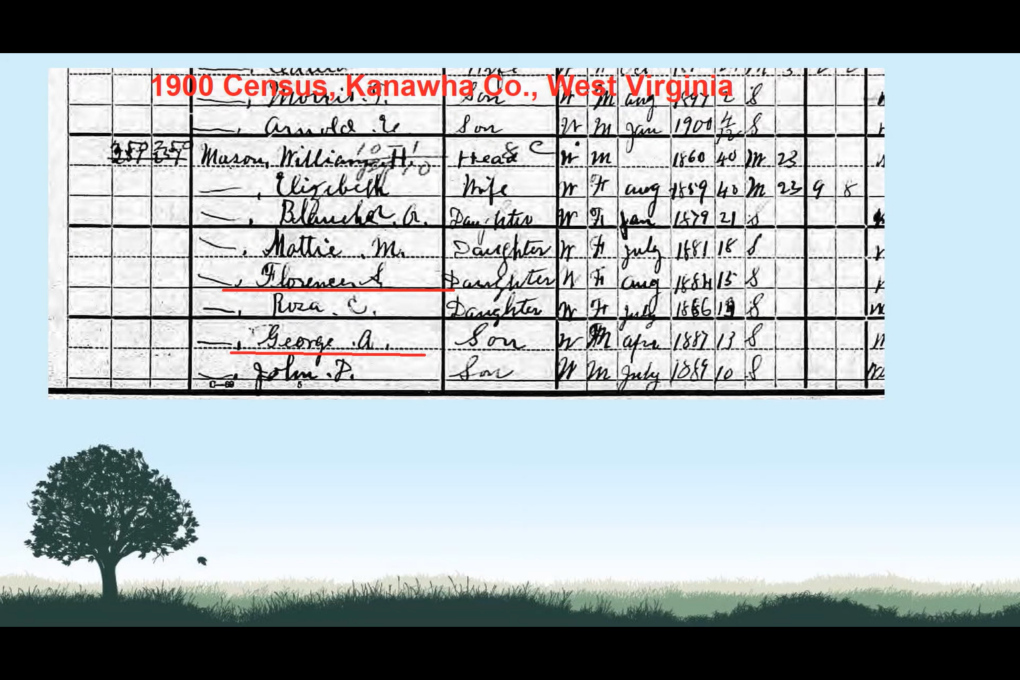 1900 Census, Kanawha Co., West Virginia
—, Morris Son W M Aug 1897 2 S
—, Arnold Son W M Jan 1900 4/12 S
Mason, William H. Head W M 1860 40 M 23
—, Elizibeth Wife W F Aug 1859 40 M 23 9 8
—, Blanche A. Daughter W F Jan 1879 21 S
—, Mattie M. Daughter W F July 1881 18 S
—, Florence S Daughter W F Aug 1884 15 S
—, Roza C. Daughter W F July 1886 13 S
—, George A. Son W M Apr 1887 13 S
—, John P. Son W M July 1889 10 S